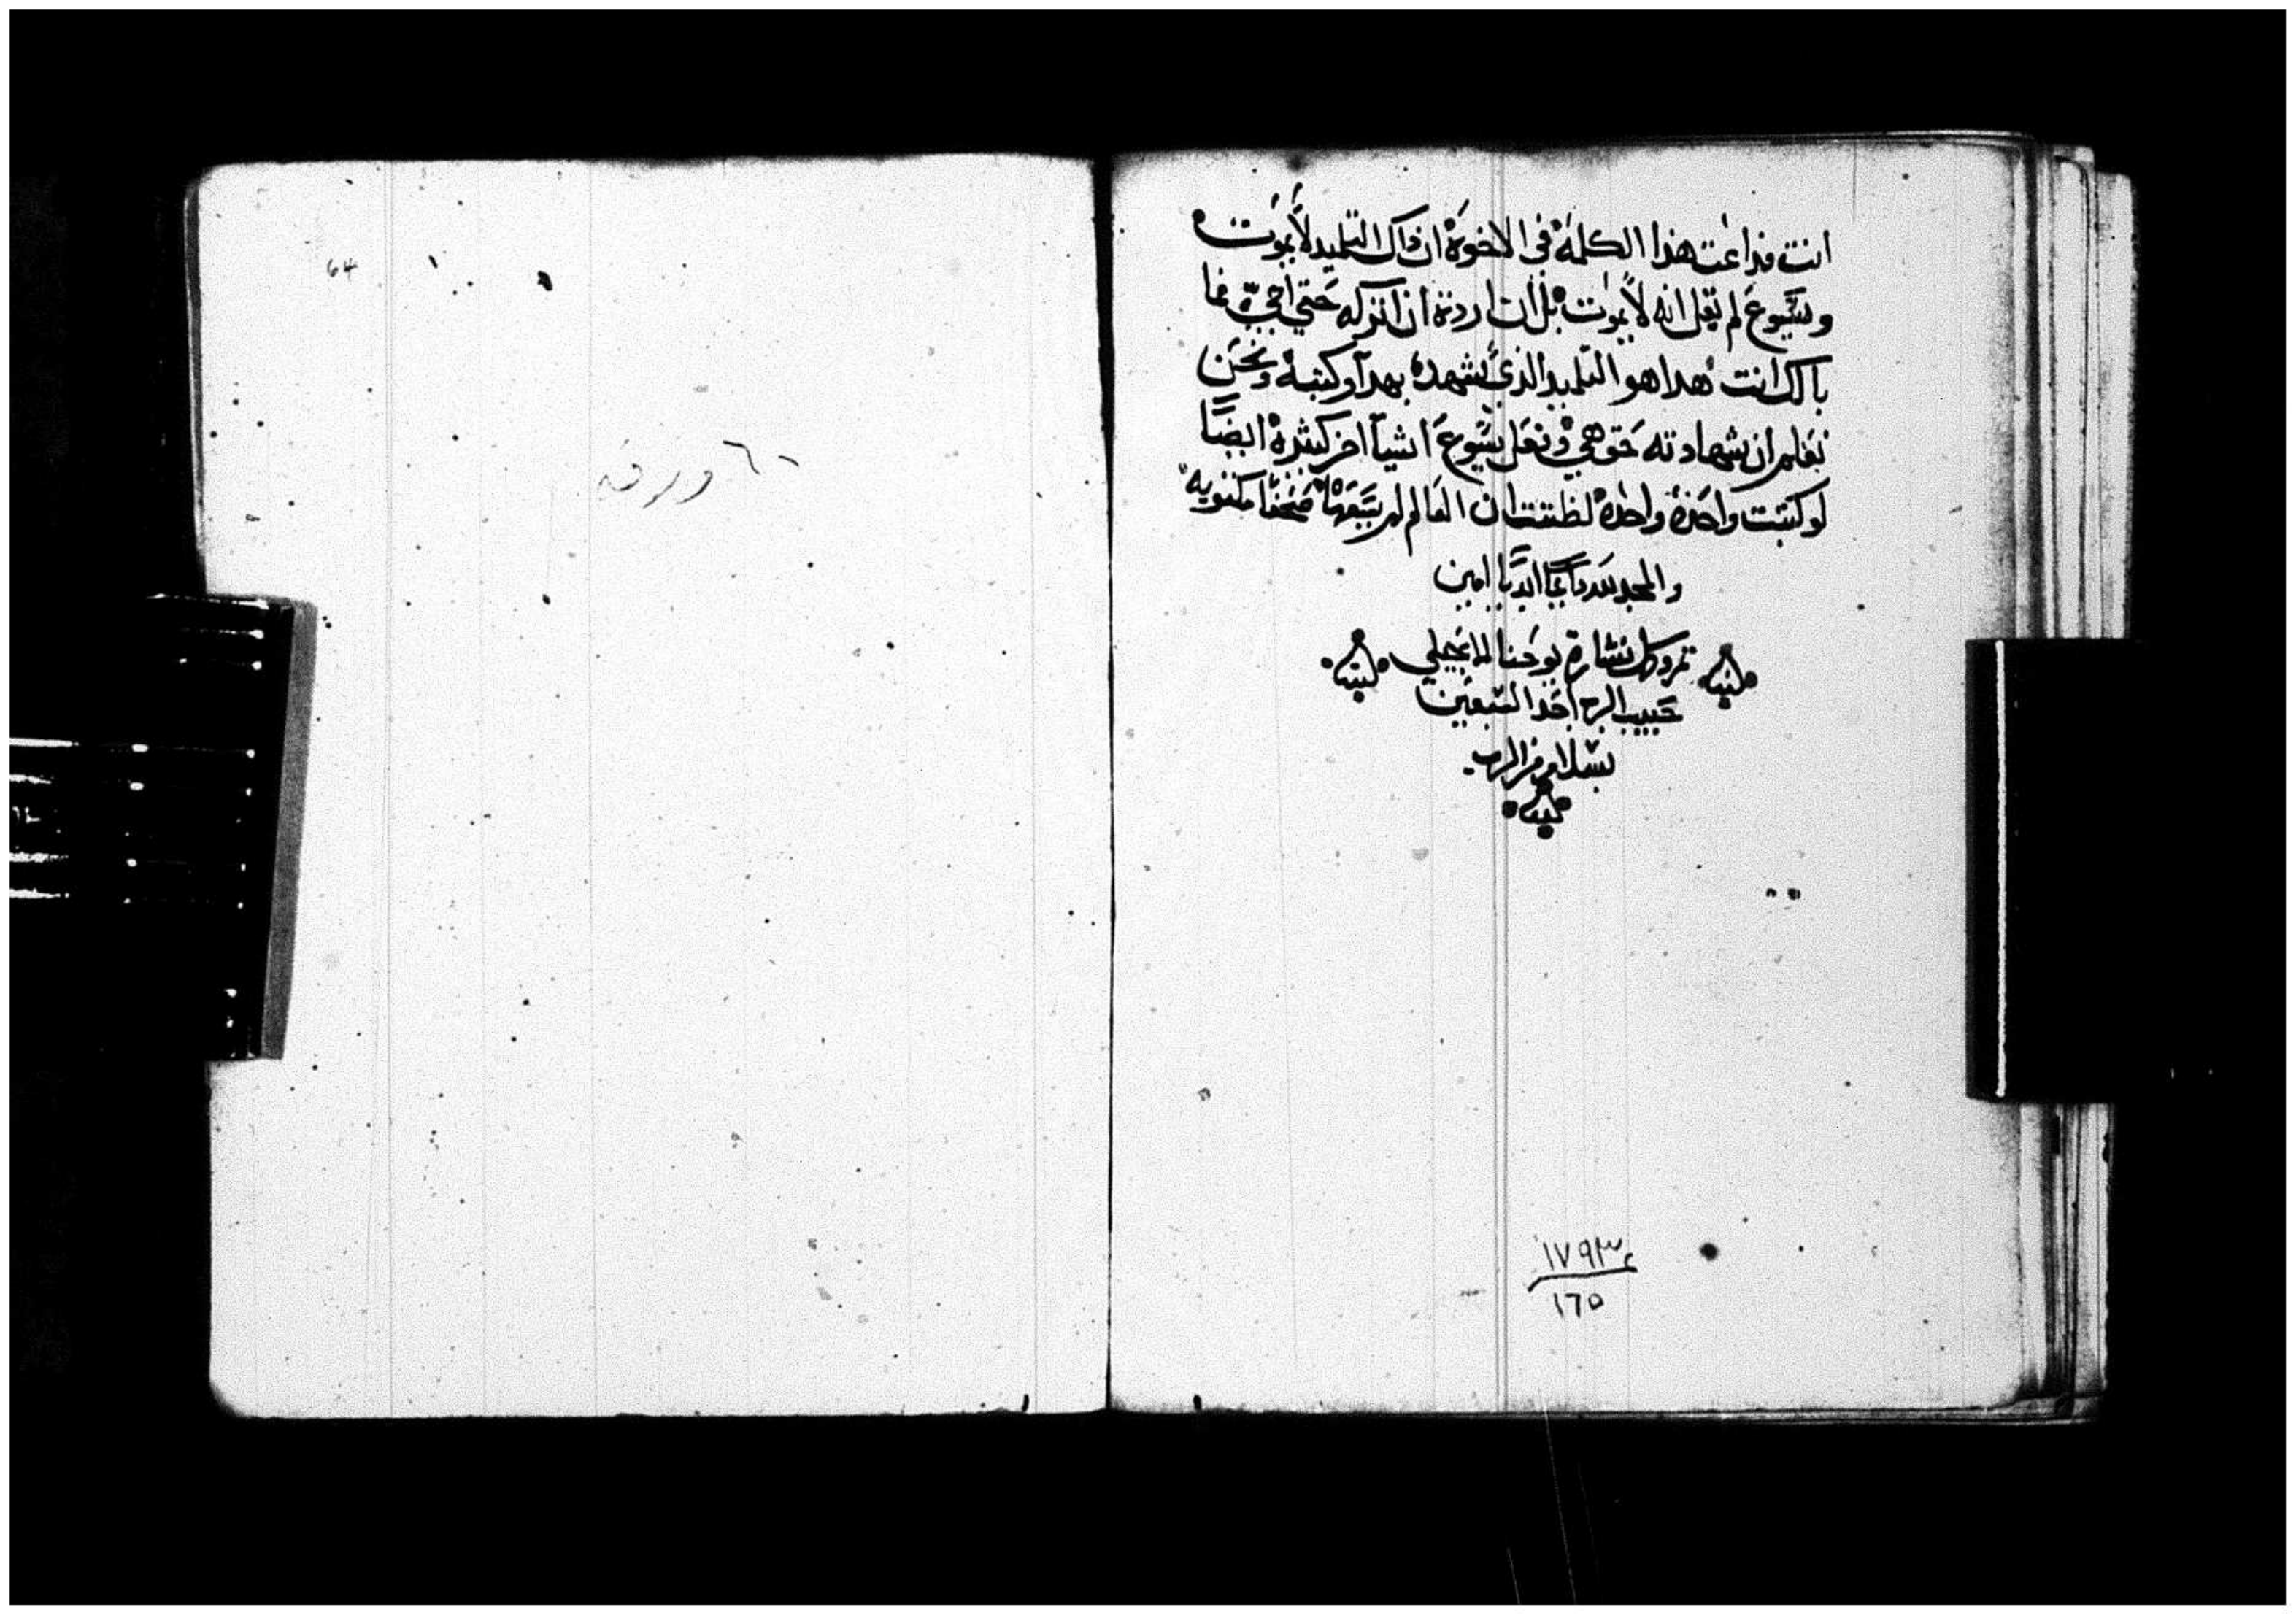 انت فذاعت هذا الكلمة في الاخوة ان ذاك التلميد لا يموت
ويسوع لم يقل انه لا يموت بل ان اردت ان اتركه حتي اجي فما
بالك انت هدا هو التلميد الذي يشهد بهدا وكتبه ونحن
نعلم ان شهادته حق هي وفعل يسوع اشيآ اخر كثيرة ايضًا
لو كتبت واحدة واحدة لظننت ان العالم لم يسعها صحفًا مكتوبه
والمجد لله دايمًا ابديًا امين
تم وكمل بشارة يوحنا الانجيلي
حبيب الرب احد السبعين
بسلام من الرب
١٧٩٣
١٦٥
64
ورقه